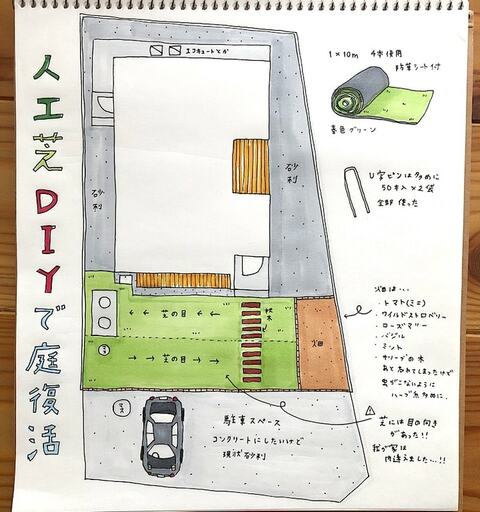 人工芝DIYで庭復活
エコキュートとか
砂利
砂利
1×10m 4本使用
防草シート付
春色グリーン
U字ピンは多めに
50本入×2袋
全部使った
← ← 芝の目 ← ←
→ → 芝の目 → →
枕木
畑
畑は…
・トマト(ミニ)
・ワイルドストロベリー
・ローズマリー
・バジル
・ミント
・オリーブの木
あと忘れてしまったけど
虫がこないように
ハーブ系多めに。
芝には目の向き
があった!!
我が家は
間違えました…!!
駐車スペース
コンクリートにしたいけど
現状砂利